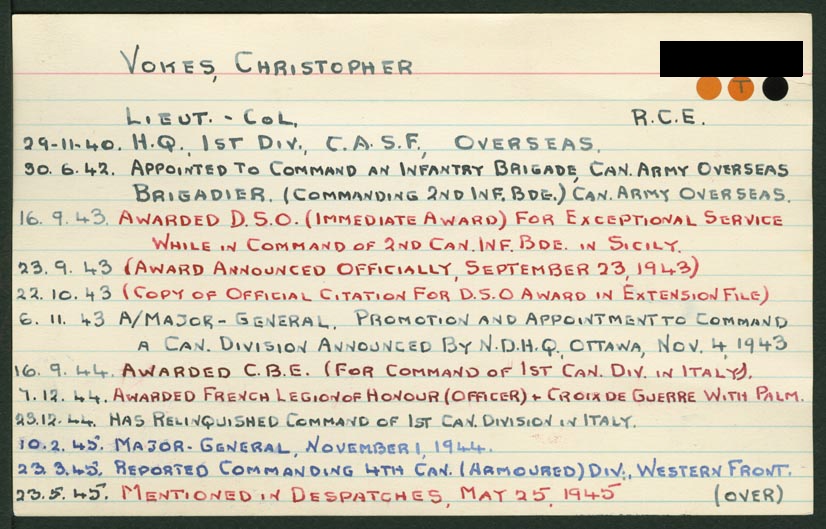 VOKES, CHRISTOPHER
T
LIEUT. - COL. R.C.E.
29-11-40. H.Q., 1ST DIV., C.A.S.F., OVERSEAS.
30.6.42. APPOINTED TO COMMAND AN INFANTRY BRIGADE, CAN. ARMY OVERSEAS
BRIGADIER. (COMMANDING 2ND INF. BDE.) CAN. ARMY OVERSEAS.
16.9.43. AWARDED D.S.O. (IMMEDIATE AWARD) FOR EXCEPTIONAL SERVICE
WHILE IN COMMAND OF 2ND CAN. INF. BDE. IN SICILY.
23.9.43 (AWARD ANNOUNCED OFFICIALLY, SEPTEMBER 23, 1943)
22.10.43 (COPY OF OFFICIAL CITATION FOR D.S.O AWARD IN EXTENSION FILE)
6.11.43 A/MAJOR-GENERAL. PROMOTION AND APPOINTMENT TO COMMAND
A CAN. DIVISION ANNOUNCED BY N.D.H.Q., OTTAWA, NOV. 4, 1943
16.9.44. AWARDED C.B.E. (FOR COMMAND OF 1ST CAN. DIV. IN ITALY).
7.12.44. AWARDED FRENCH LEGION OF HONOUR (OFFICER) + CROIX DE GUERRE WITH PALM.
23.12.44. HAS RELINQUISHED COMMAND OF 1ST CAN. DIVISION IN ITALY.
10.2.45. MAJOR-GENERAL, NOVEMBER 1, 1944.
23.3.45. REPORTED COMMANDING 4TH CAN. (ARMOURED) DIV., WESTERN FRONT.
23.5.45. MENTIONED IN DESPATCHES, MAY 25, 1945 (OVER)